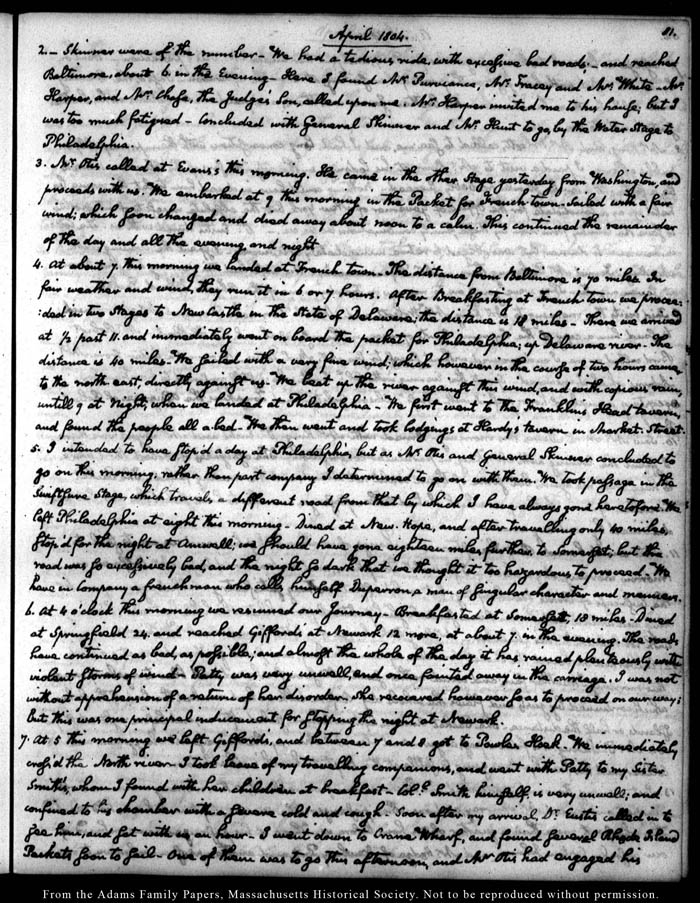 April 1804.
81.
2. – Skinner were of the number – We had a tedious ride, with excessive bad roads; – and reached
Baltimore, about 6. in the Evening – Here I found Mr. Purviance, Mr. Tracey and Mr. White – Mr.
Harper, and Mr. Chase, the Judge's Son, called upon me. Mr. Harper invited me to his house; but I
was too much fatigued – Concluded with General Skinner and Mr. Hunt to go by the Water Stage to
Philadelphia.
3. Mr. Otis called at Evans's this morning. He came in the other Stage yesterday from Washington, and
proceeds with us. We embarked at 9 this morning in the Packet for French town. Sailed with a fair
wind; which soon changed and died away about noon to a calm. This continued the remainder
of the day and all the evening and night
4. At about 7. this morning we landed at French town. The distance from Baltimore is 70 miles. In
fair weather and wind, they run it in 6 or 7 hours. After Breakfasting at French town we procee-
:ded in two Stages to New Castle in the State of Delaware; the distance is 18 miles – There we arrived
at ½ past 11. and immediately went on board the packet for Philadelphia; up Delaware river – The
distance is 40 miles. We sailed with a very fine wind; which however in the course of two hours came
to the north east, directly against us. We beat up the river against this wind, and with copious rain,
untill 9 at Night, when we landed at Philadelphia – We first went to the Franklins Head tavern,
and found the people all a bed – We then went and took lodgings at Hardy's tavern in Market Street.
5. I intended to have stop'd a day at Philadelphia, but as Mr. Otis and General Skinner concluded to
go on this morning, rather than part company I determined to go on with them. We took passage in the
Swiftsure Stage, which travels a different road from that by which I have always gone heretofore. We
left Philadelphia at eight this morning – Dined at New Hope, and after travelling only 40 miles,
stop'd for the night at Amwell; we should have gone eighteen miles further to Somerset; but the
road was so excessively bad, and the night so dark that we thought it too hazardous to proceed. We
have in Company a frenchman who calls himself Duparron, a man of singular character and manners.
6. At 4 o'clock this morning we resumed our Journey – Breakfasted at Somersett, 18 miles – Dined
at Springfield 24. and reached Gifford's at Newark 12 more, at about 7. in the evening. The roads
have continued as bad, as possible; and almost the whole of the day it has rained plenteously with
violent storms of wind – Patty was very unwell, and once fainted away in the carriage. I was not
without apprehension of a return of her disorder. She recovered however so as to proceed on our way;
but this was one principal inducement for stopping the night at Newark.
7. At 5 this morning we left Gifford's, and between 7 and 8 got to Powles Hook. We immediately
cross'd the North river – I took leave of my travelling companions, and went with Patty to my Sister
Smith's, whom I found with her children at breakfast – Coll. Smith himself is very unwell; and
confined to his chamber with a severe cold and cough – Soon after my arrival, Dr. Eustis called in to
see him, and sat with us an hour – I went down to Crane Wharf, and found several Rhode Island
Packets soon to sail – One of them was to go this afternoon, and Mr. Otis had engaged his
From the Adams Family Papers, Massachusetts Historical Society. Not to be reproduced without permission.